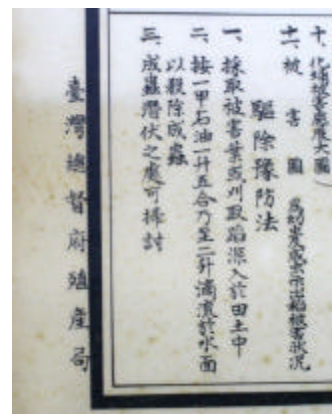 十、化蛹被害廓大圖
十一、被害圖
驅除豫防法
一、採取被害葉或刈取蹈深入於田土中
二、按一甲石油一升五合乃至二升滴流於水面
以殺除成蟲
三、成蟲潛伏之處可捕討
臺灣總督府殖產局